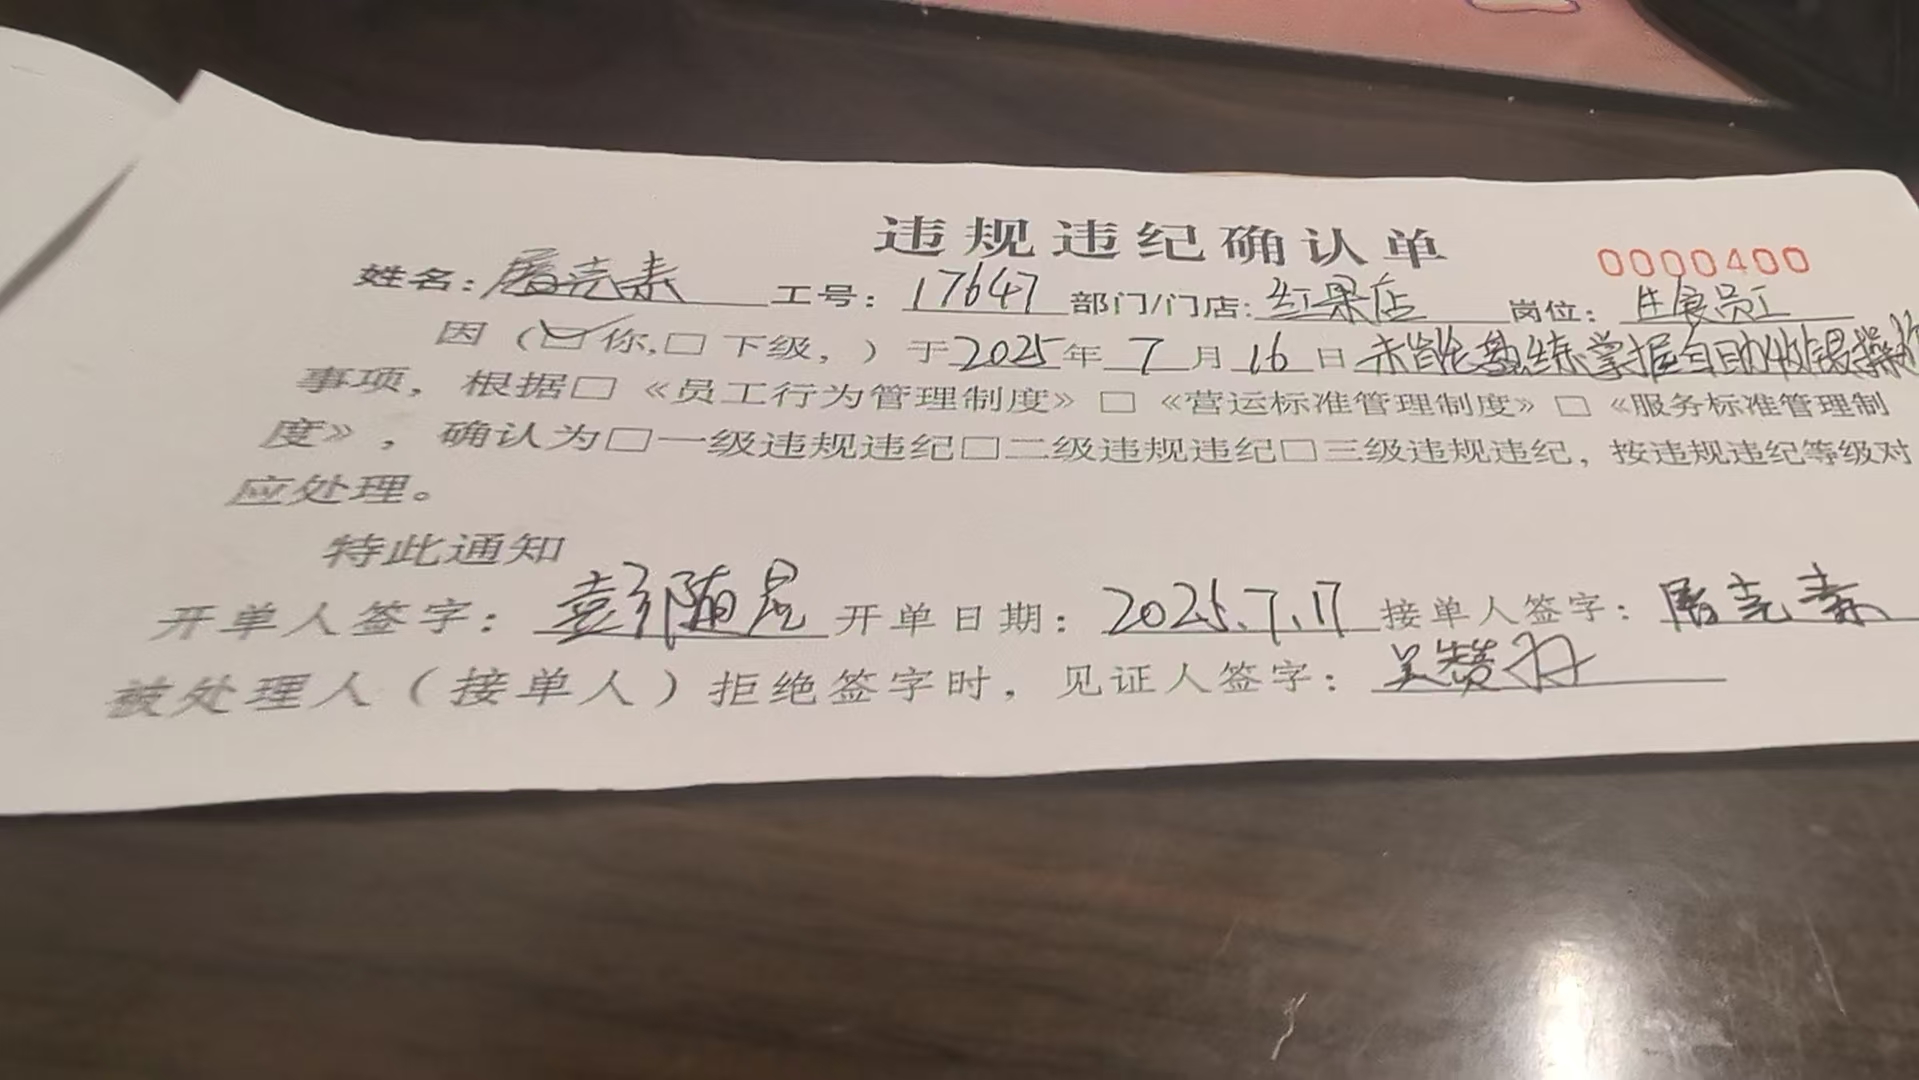 违规违纪确认单
0000400
姓名:屠尧素 工号:17647 部门/门店:红果店 岗位:生展员工
因(☑你,□下级,)于2025年7月16日未能熟练掌握自助收银操作
事项,根据□《员工行为管理制度》□《营运标准管理制度》□《服务标准管理制
度》,确认为□一级违规违纪□二级违规违纪□三级违规违纪,按违规违纪等级对
应处理。
特此通知
开单人签字:彭随 开单日期:2025.7.17 接单人签字:屠尧素
被处理人(接单人)拒绝签字时,见证人签字:吴赞